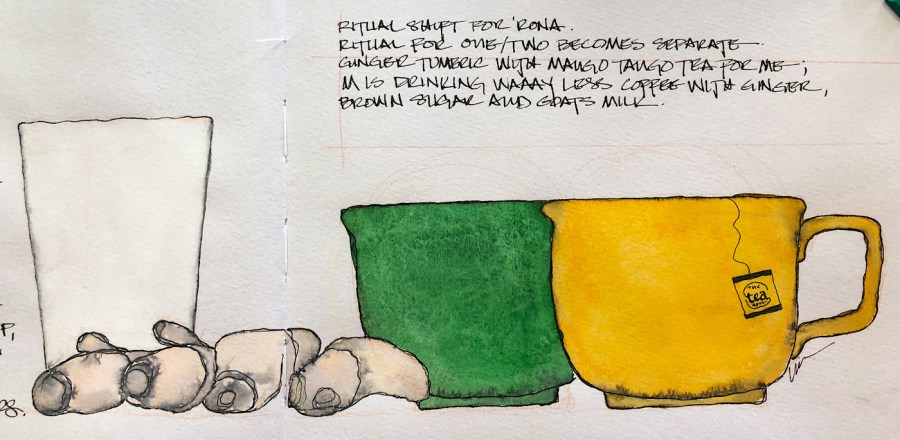 RITUAL SHIFT FOR 'RONA.
RITUAL FOR ONE/TWO BECOMES SEPARATE.
GINGER TUMERIC WITH MANGO TANGO TEA FOR ME;
M IS DRINKING WAAAY LESS COFFEE WITH GINGER,
BROWN SUGAR AND GOATS MILK.
tea
P,